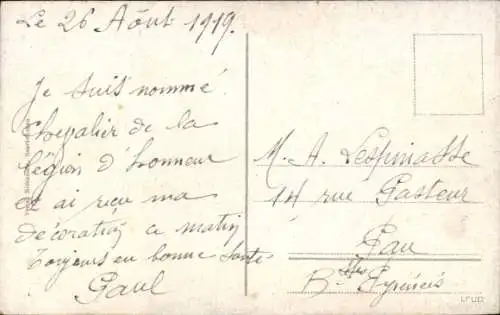 Le 26 Aôut 1919.
Je suis nommé
Chevalier de la
légion d'honneur
et ai reçu ma
décoration ce matin
Toujours en bonne santé
Paul
M. A. Lespinasse
14 rue Pasteur
Pau
Bses Pyrénées